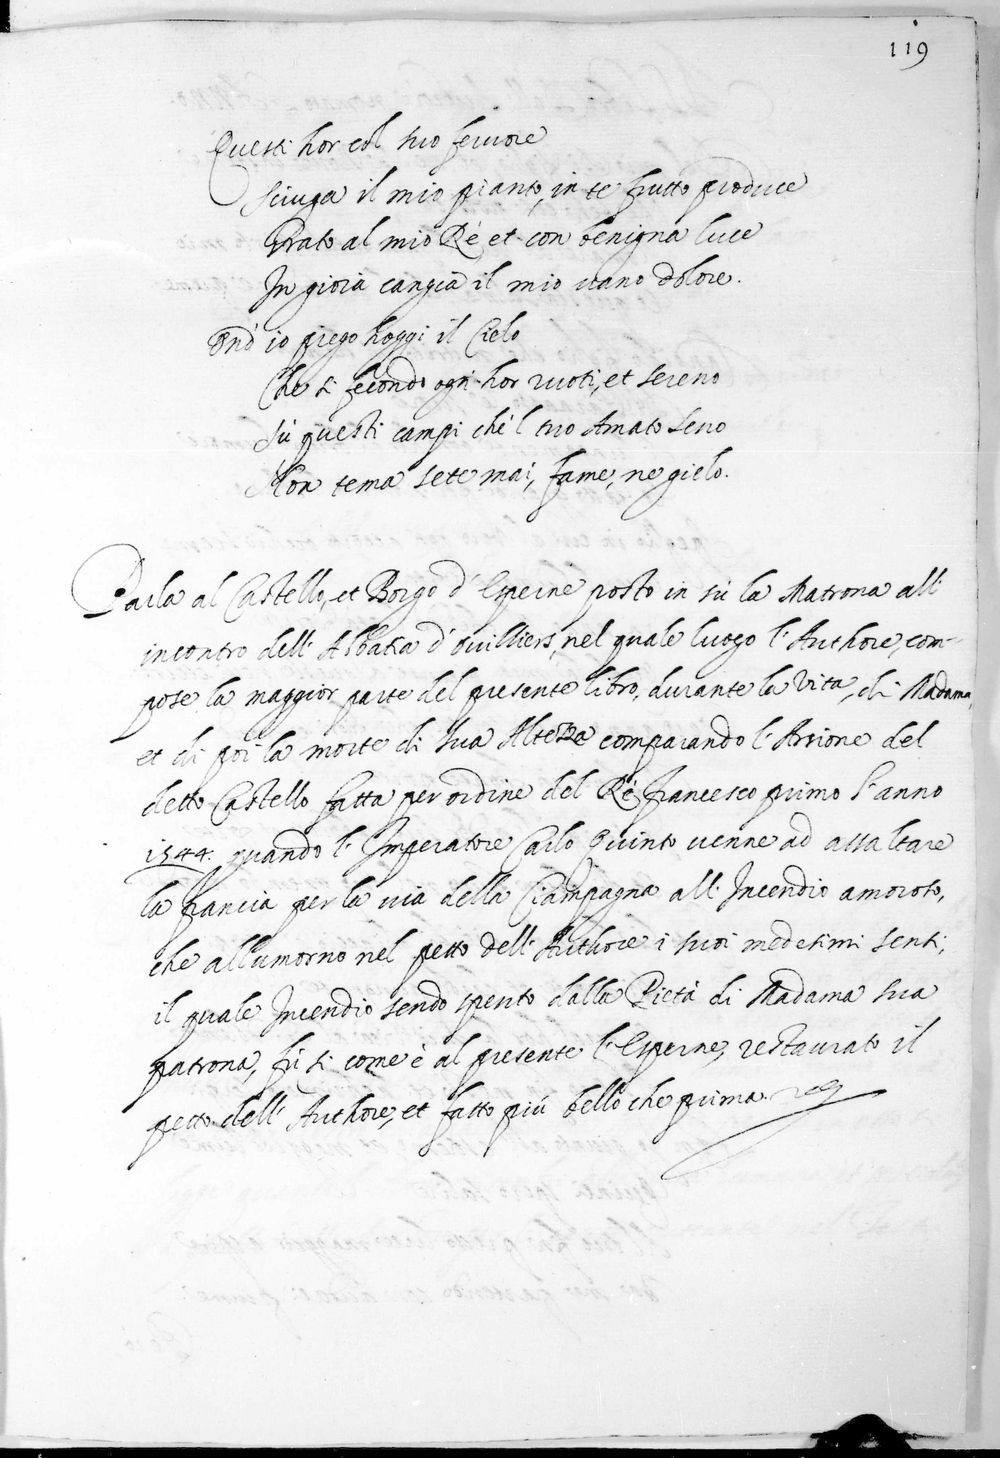 119
Questi hor col suo feruore
Sciuga il mio pianto, in te frutto produce
Grato al mio Ré et con benigna luce
In gioia cangia il mio uano dolore.
Ond' io priego hoggi il Cielo
Che si fecondo ogni hor ruoti, et sereno
Sú questi campi che'l tuo Amato seno
Non tema sete mai, fame, ne gielo.
Parla al Castello, et Borgo d' Esperne posto in sú la Matrona all'
incontro dell' Abbatia d' Ouilliers, nel quale luogo l' Authore, com-
pose la maggior parte del presente libro, durante la Vita, di Madama,
et di poi la morte di sua Altezza comparando l' Arsione del
detto Castello fatta per ordine del Ré Francesco primo l' anno
1544. quando l' Imperatore Carlo Quinto uenne ad assaltare
la francia per la uia della Ciampagna all' Incendio amoroso,
che allumorno nel petto dell' Authore i suoi medesimi sensi,
il quale Incendio sendo spento dalla Pietà di Madama sua
patrona, fú si come è al presente l' Esperne, restaurato il
petto dell' Authore, et fatto piú bello che prima.